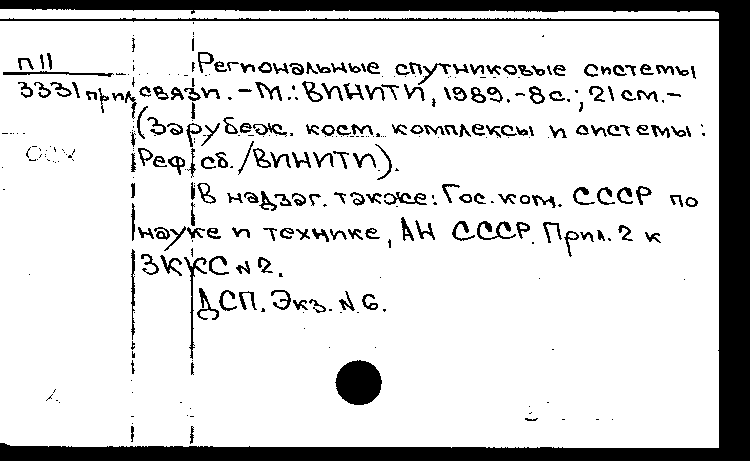 П11
3331 прил.
осх
Региональные спутниковые системы
связи. - М.: ВИНИТИ, 1989. - 8 с.; 21 см. -
(Зарубеж. косм. комплексы и системы:
Реф. сб. / ВИНИТИ).
В надзаг. также: Гос. ком. СССР по
науке и технике, АН СССР. Прил. 2 к
ЗККС N 2.
ДСП. Экз. N 6.